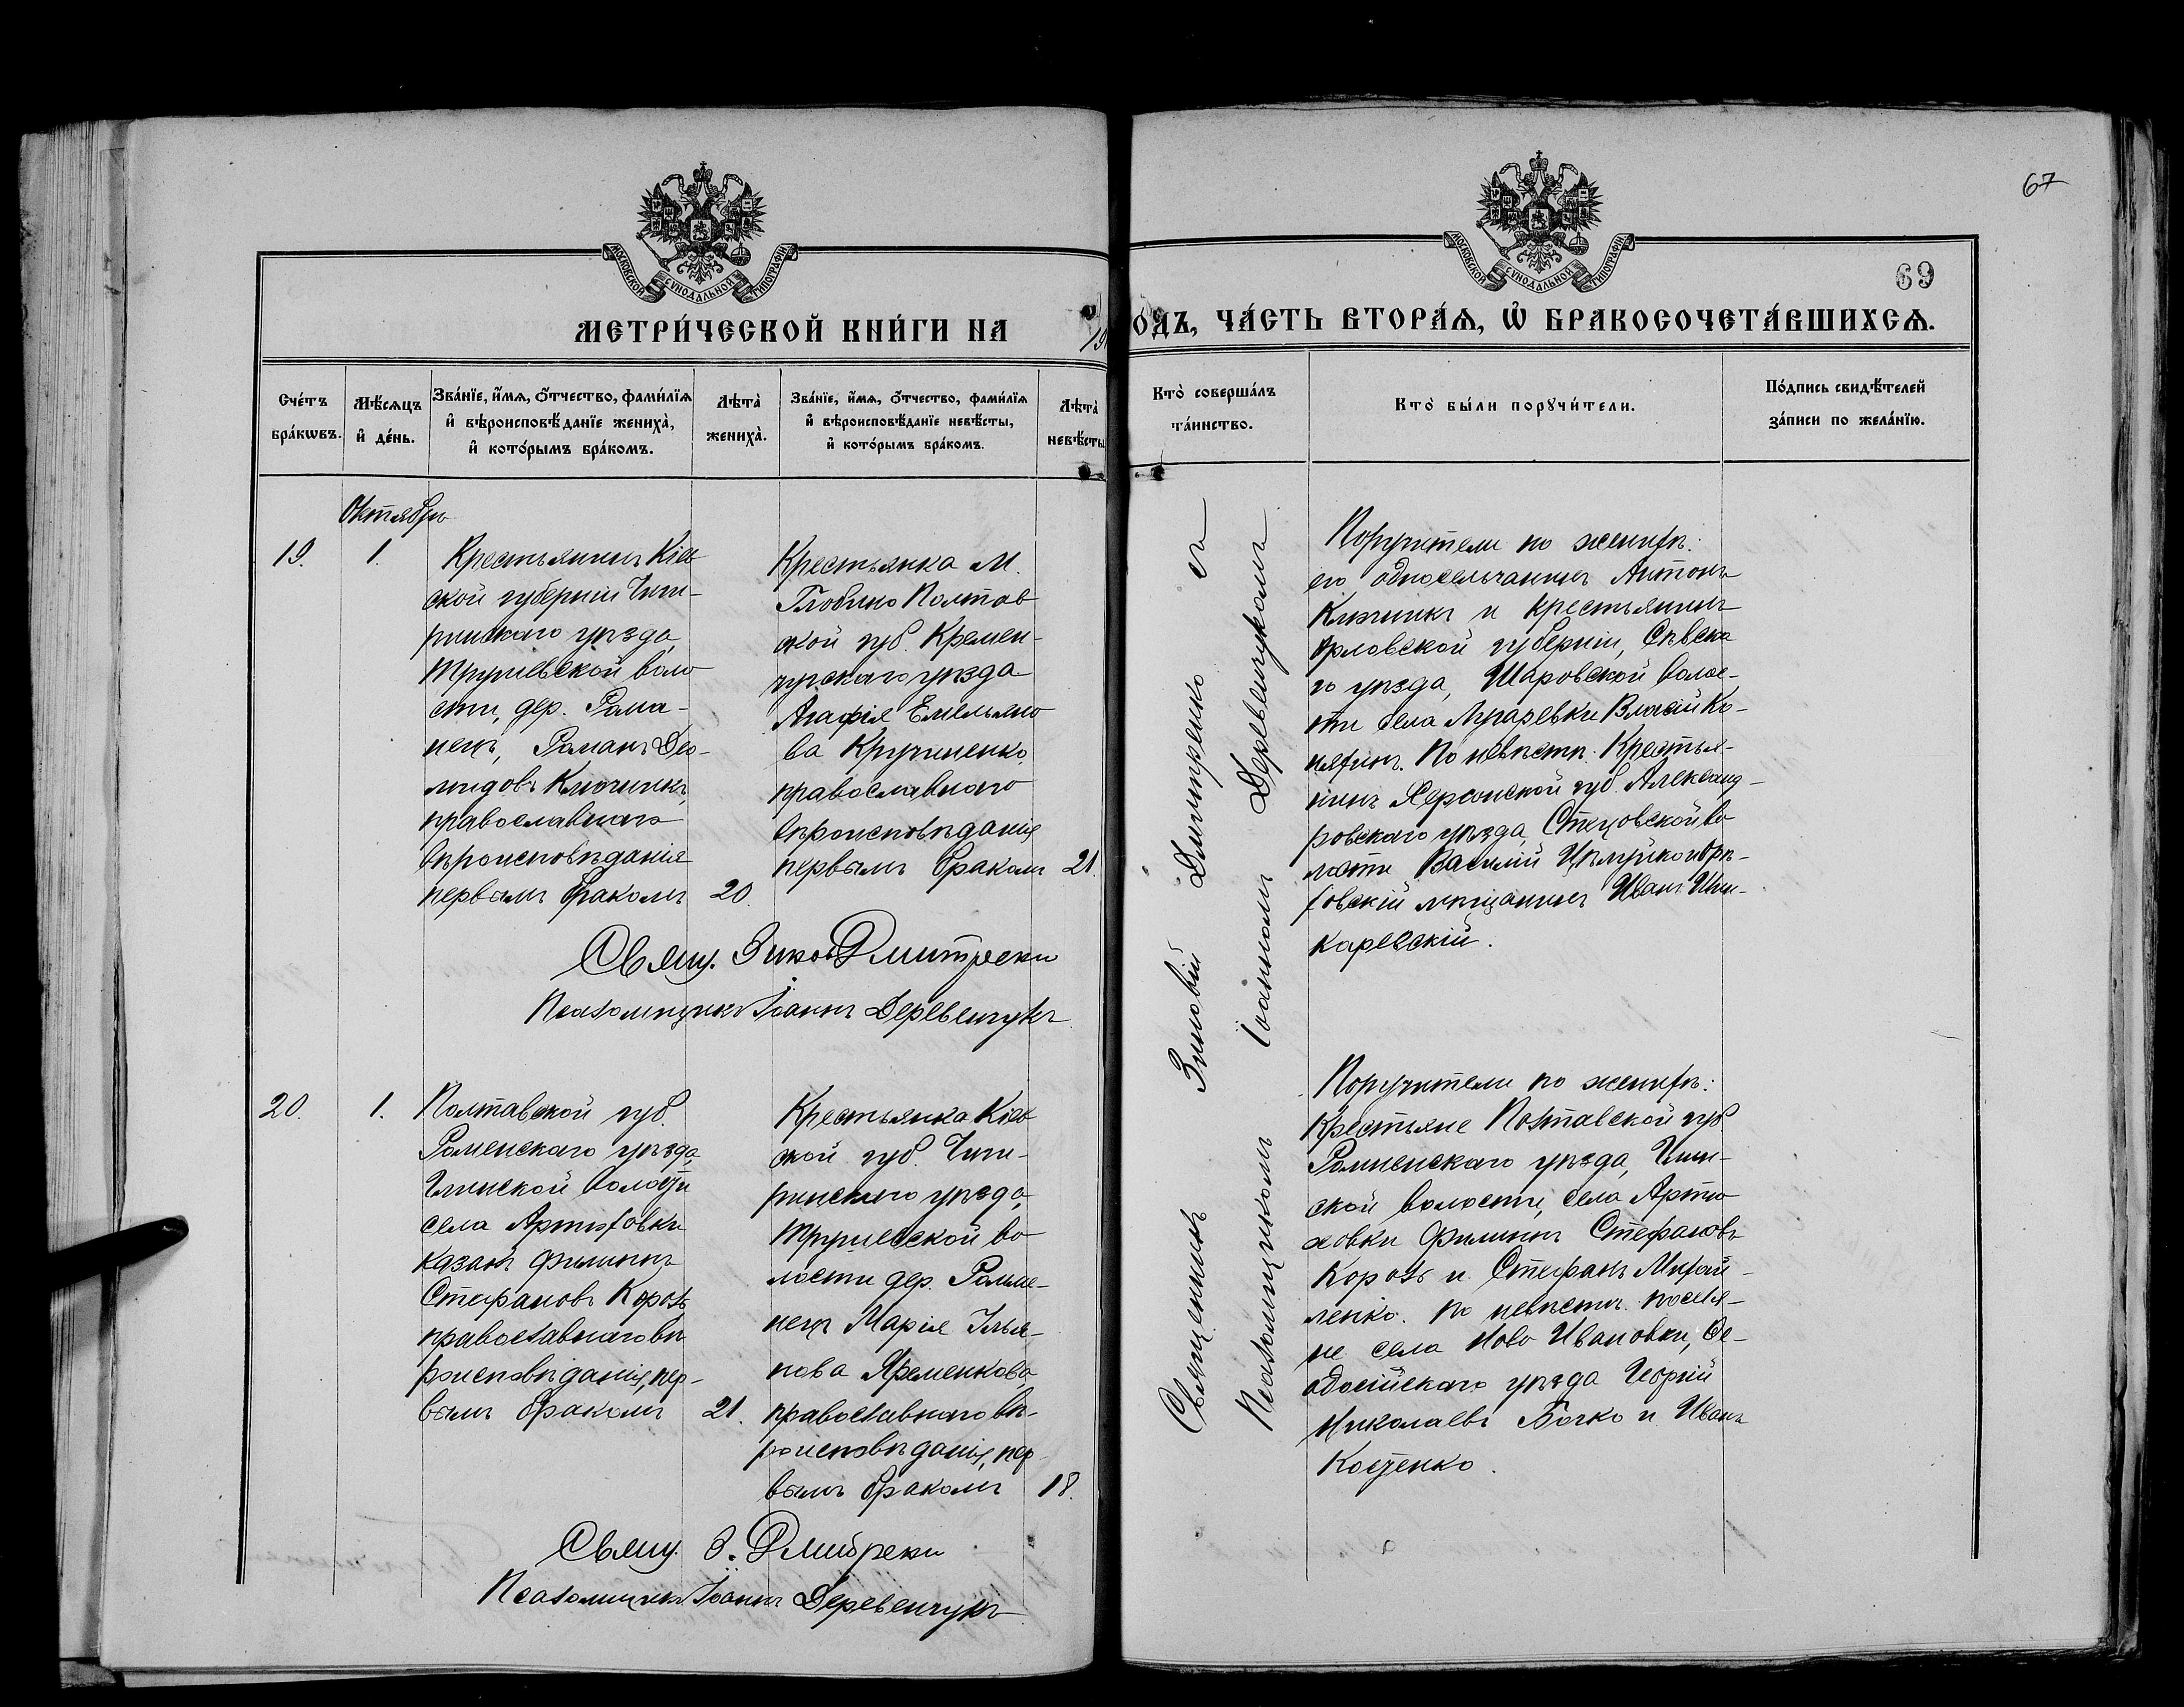 67
69
МОСКОВСКОЙ СѴНОДАЛЬНОЙ ТИПОГРАФІИ.
МОСКОВСКОЙ СѴНОДАЛЬНОЙ ТИПОГРАФІИ.
МЕТРИ́ЧЕСКОЙ КНИ́ГИ НА 19
ОДЪ, ЧА́СТЬ ВТОРА́Ѧ, Ѽ БРАКОСОЧЕТА́ВШИХСѦ.
Сче́тъ бра́кѡвъ.
Мѣ́сѧцъ и҆ де́нь.
Зва́нїе, и҆́мѧ, ѻ҆́тчество, фами́лїѧ
и҆ вѣроисповѣ́данїе жениха̀,
и҆ кото́рымъ бра́комъ.
Лѣта̀ жениха̀.
Зва́нїе, и҆́мѧ, ѻ҆́тчество, фами́лїѧ
и҆ вѣроисповѣ́данїе невѣ́сты,
и҆ кото́рымъ бра́комъ.
Лѣта̀ невѣ́сты
Кто̀ соверша́лъ
та́инство.
Кто̀ бы́ли порꙋчи́тели.
По́дпись свидѣ́телей
за́писи по жела́нїю.
Октябрь
19.
1.
Крестьянинъ Кіев
ской губерніи Чиги-
ринскаго уѣзда,
Трушевской воло
сти, дер. Рома-
нецъ, Романъ Део-
мидовъ Ключникъ,
православнаго
вѣроисповѣданія
первымъ бракомъ
20.
Крестьянка м.
Глобино Полтав
ской губ. Кремен-
чугскаго уѣзда
Агафія Емельяно
ва Кручиненко,
православнаго
вѣроисповѣданія
первымъ бракомъ
21.
Свящ. Зинов Дмитренко
Псаломщикъ Іоаннъ Деревенчукъ
Поручители по женихѣ:
его односельчанинъ Антонъ
Ключникъ и крестьянинъ
Орловской губерніи, Сѣвска
го уѣзда, Шаровской волос-
ти села Лугаревки Власій Ко-
няхинъ. По невѣстѣ: Крестья-
нинъ Херсонской губ. Александ-
ровскаго уѣзда, Стецовской во
лости Василій Цѣлуйко и Орѣ-
ховскій мѣщанинъ Иванъ Шин-
каревскій.
Священникъ Зиновій Димитренко съ
Псаломщикомъ Іоанномъ Деревенчукомъ
20.
1.
Полтавской губ.
Роменскаго уѣзда,
Глинской волости
села Артюховки
казакъ Филиппъ
Стефановъ Король
православнаго вѣ
роисповѣданія, пер-
вымъ бракомъ
21.
Крестьянка Кіев
ской губ. Чиги-
ринскаго уѣзда,
Трушевской во
лости дер. Рома-
нецъ Марія Улья-
нова Яременкова,
православнаго вѣ-
роисповѣданія, пер-
вымъ бракомъ
18.
Свящ. З. Дмитренко
Псаломщикъ Іоаннъ Деревенчукъ
Поручители по женихѣ:
Крестьяне Полтавской губ
Роменскаго уѣзда, Глин-
ской волости, села Артю
ховки Филиппъ Стефановъ
Король и Стефанъ Михай-
ленко. По невѣстѣ: поселя-
не села Ново Ивановки, Ѳе-
одосійскаго уѣзда Георгій
Николаевъ Бочко и Иванъ
Костенко.